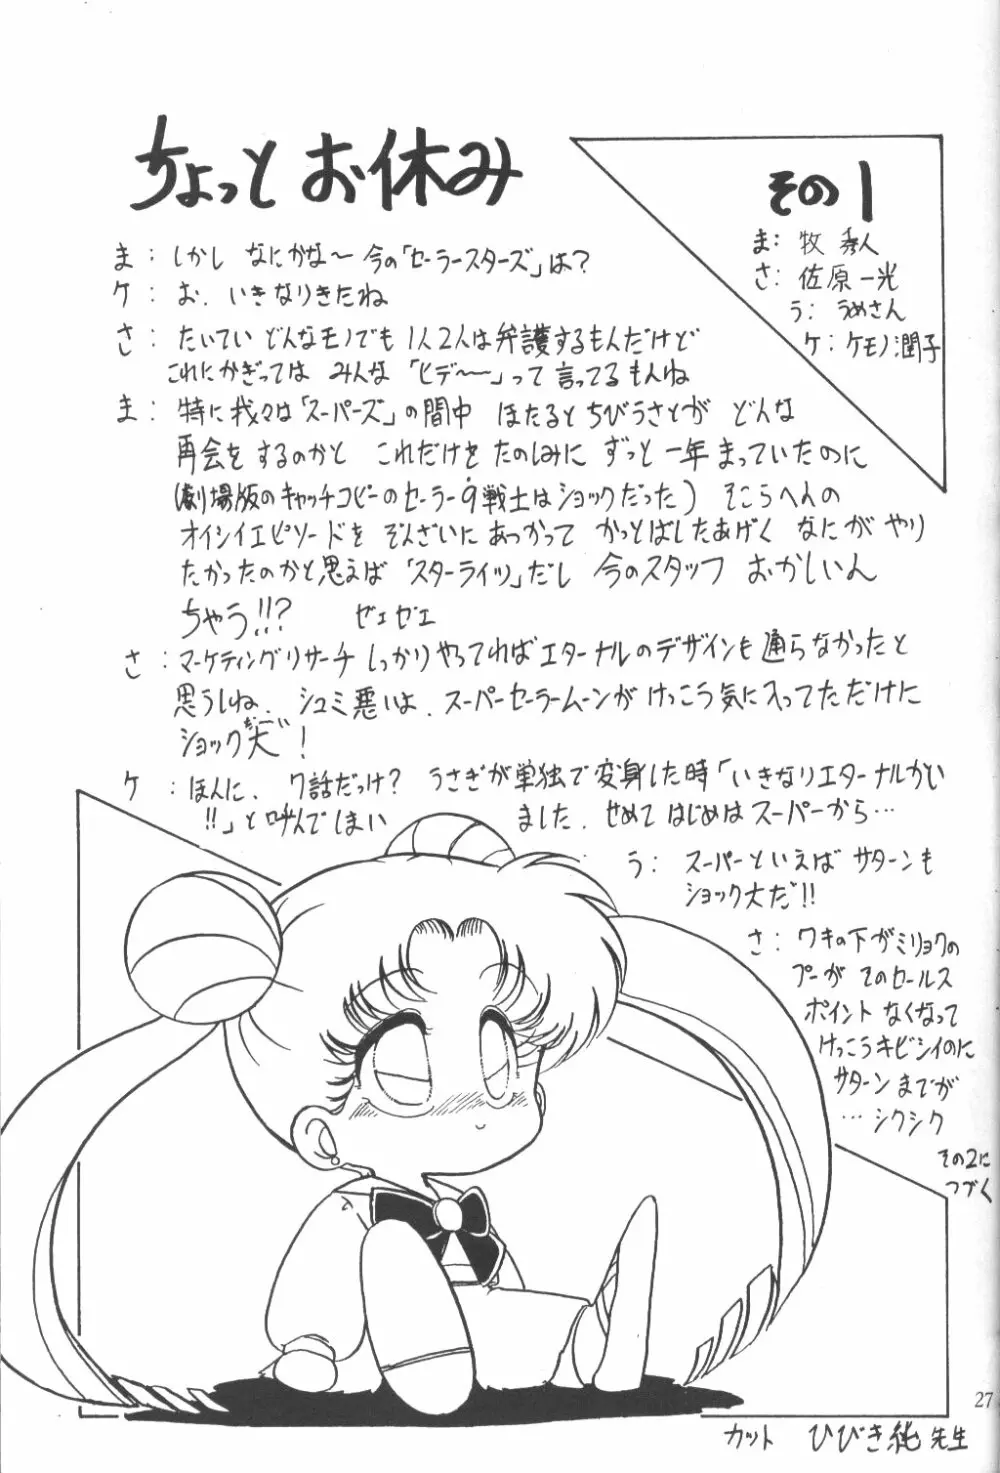 ちょっとお休み
その1
ま：牧 秀人
さ：佐原一光
う：うめさん
ケ：ケモノ潤子
ま：しかし なにかな〜 今の「セーラースターズ」は？
ケ：お、いきなりきたね
さ：たいてい どんなモノでも 1人2人は弁護するもんだけど
これにかぎっては みんな「ヒデ〜〜」って言ってるもんね
ま：特に我々は「スーパーズ」の間中 ほたるとちびうさとが どんな
再会をするのかと これだけをたのしみに ずっと一年まっていたのに
(劇場版のキャッチコピーのセーラー9戦士はショックだった) そこらへんの
オイシイエピソードを ぞんざいにあつかって かっとばしたあげく なにがやり
たかったのかと思えば 「スターライツ」だし 今のスタッフ おかしいん
ちゃう!!? ゼェゼェ
さ：マーケティングリサーチ しっかりやってれば エターナルのデザインも通らなかったと
思うしね、シュミ悪いよ、スーパーセーラームーンがけっこう気に入ってただけに
ショック大！
ケ：ほんに、7話だっけ？ うさぎが単独で変身した時「いきなりエターナルかい
!!」と叫んでしまい ました、せめて はじめはスーパーから…
う：スーパーといえば サターンも
ショック大だ!!
さ：ワキの下がミリョクの
プーが そのセールス
ポイント なくなって
けっこうキビシイのに
サターンまでが
…シクシク
その2に
つづく
27
カット ひびき純先生